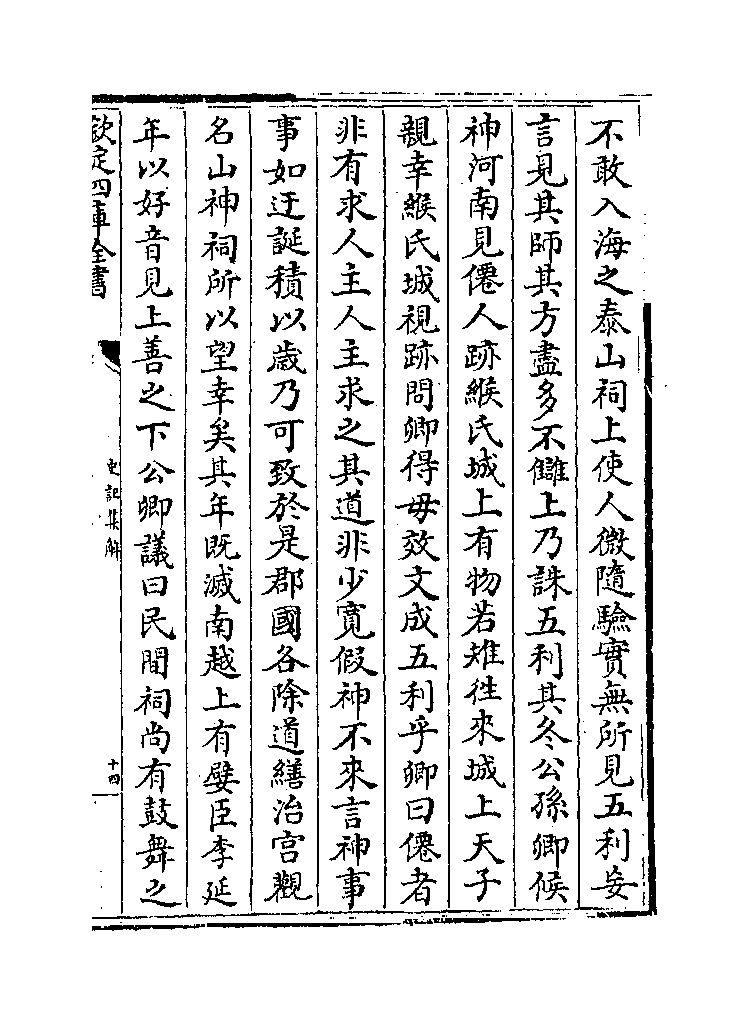 不敢入海之泰山祠上使人微隨驗實無所見五利妄
言見其師其方盡多不讎上乃誅五利其冬公孫卿候
神河南見僊人跡緱氏城上有物若雉徃來城上天子
親幸緱氏城視跡問卿得毋效文成五利乎卿曰僊者
非有求人主人主求之其道非少寛假神不來言神事
事如迂誕積以嵗乃可致於是郡國各除道繕治宫觀
名山神祠所以望幸矣其年既滅南越上有嬖臣李延
年以好音見上善之下公卿議曰民間祠尚有鼓舞之
欽定四庫全書
史記集解
十四